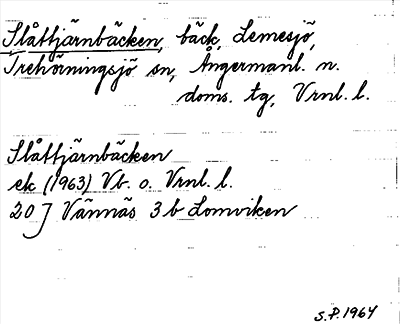 Slåttjärnbäcken, bäck, Lemesjö,
Trehörningsjö sn, Ångermanl. n.
doms. tg, Vrnl. l.
Slåttjärnbäcken
ek (1963) Vb. o. Vrnl. l.
20 J Vännäs 3 b Lomviken
S.P. 1964